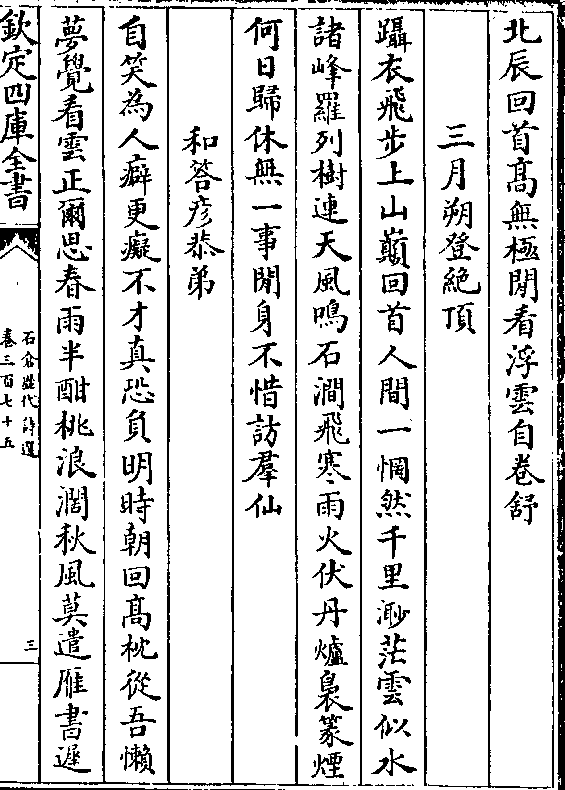 北辰回首髙無極閒看浮雲自卷舒
三月朔登絶頂
躡衣飛步上山巔回首人間一惘然千里渺茫雲似水
諸峰羅列樹連天風鳴石澗飛寒雨火伏丹爐裊篆煙
何日歸休無一事閒身不惜訪羣仙
和答彦恭弟
自笑為人癖更癡不才真恐負明時朝回髙枕從吾懶
夢覺看雲正爾思春雨半酣桃浪濶秋風莫遣雁書遲
欽定四庫全書
石倉歴代詩選
卷三百七十五
三